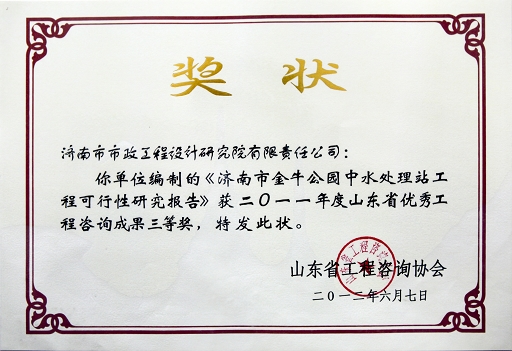 奖 状
济南市市政工程设计研究院有限责任公司：
你单位编制的《济南市金牛公园中水处理站工
程可行性研究报告》获二〇一一年度山东省优秀工
程咨询成果三等奖，特发此状。
山东省工程咨询协会
二〇一二年六月七日